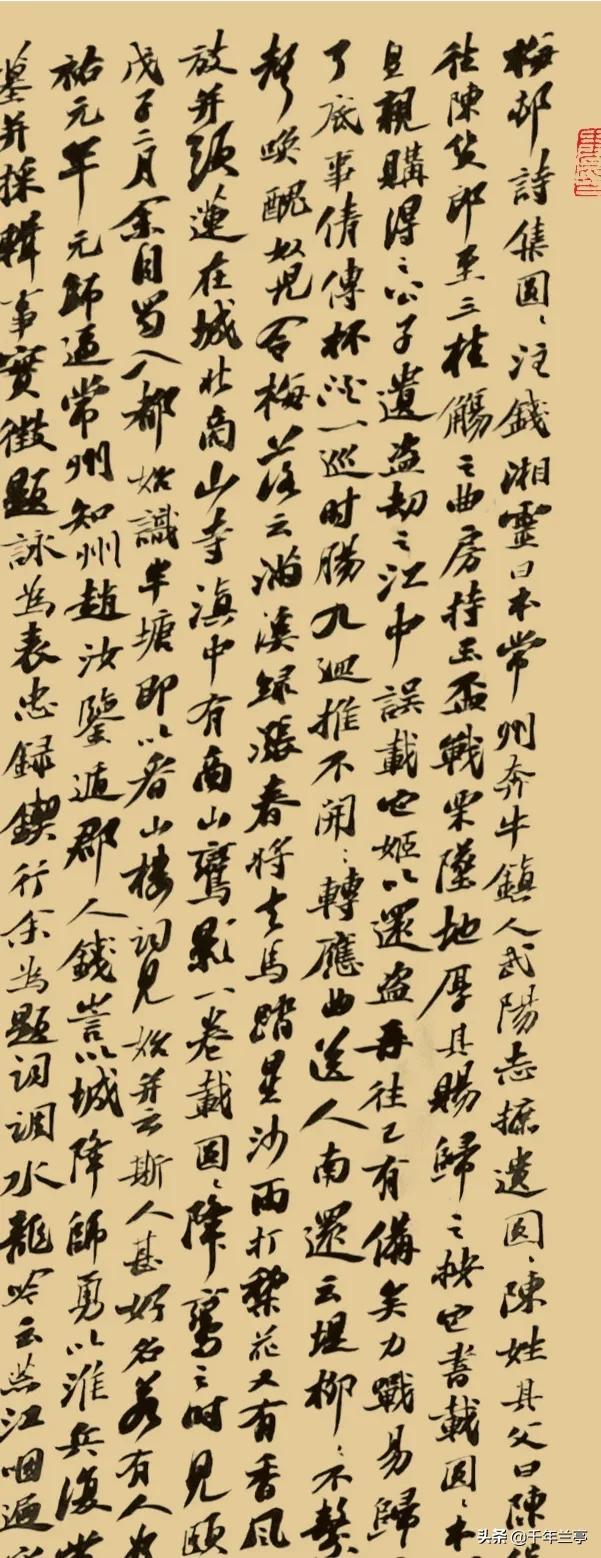 梅邨詩集圓〻注錢湘靈曰本常州奔牛鎮人武陽志摭遺圓〻陳姓其父曰陳
往陳貨郎至三桂觴之曲房持玉盃戰栗墜地厚其賜歸之按它書載圓〻本
且親購得之公子遺盗劫之江中誤載它姬以還盗再往已有備矣力戰易歸
了底事倩傳杯淡一巡时腸九迴推不開〻轉應曲送人南還云堤柳〻不繫
聲喚醜奴児令梅落云滿溪緑漲春將去馬踏星沙雨打棃花又有香風
放并頭蓮在城北商山寺滇中有商山鸞影一卷載圓〻降鸞之时見頤
戊子二月余自蜀入都始識半塘即以看山樓詞見始并云斯人甚好名若有人
祐元年元師逼常州知州趙汝鑒遁郡人錢訔以城降師勇以淮兵復常
墓并採輯事實徵題詠為表忠録鍥行余為題詞調水龍吟云荒江咽遍
头条 @千年兰亭